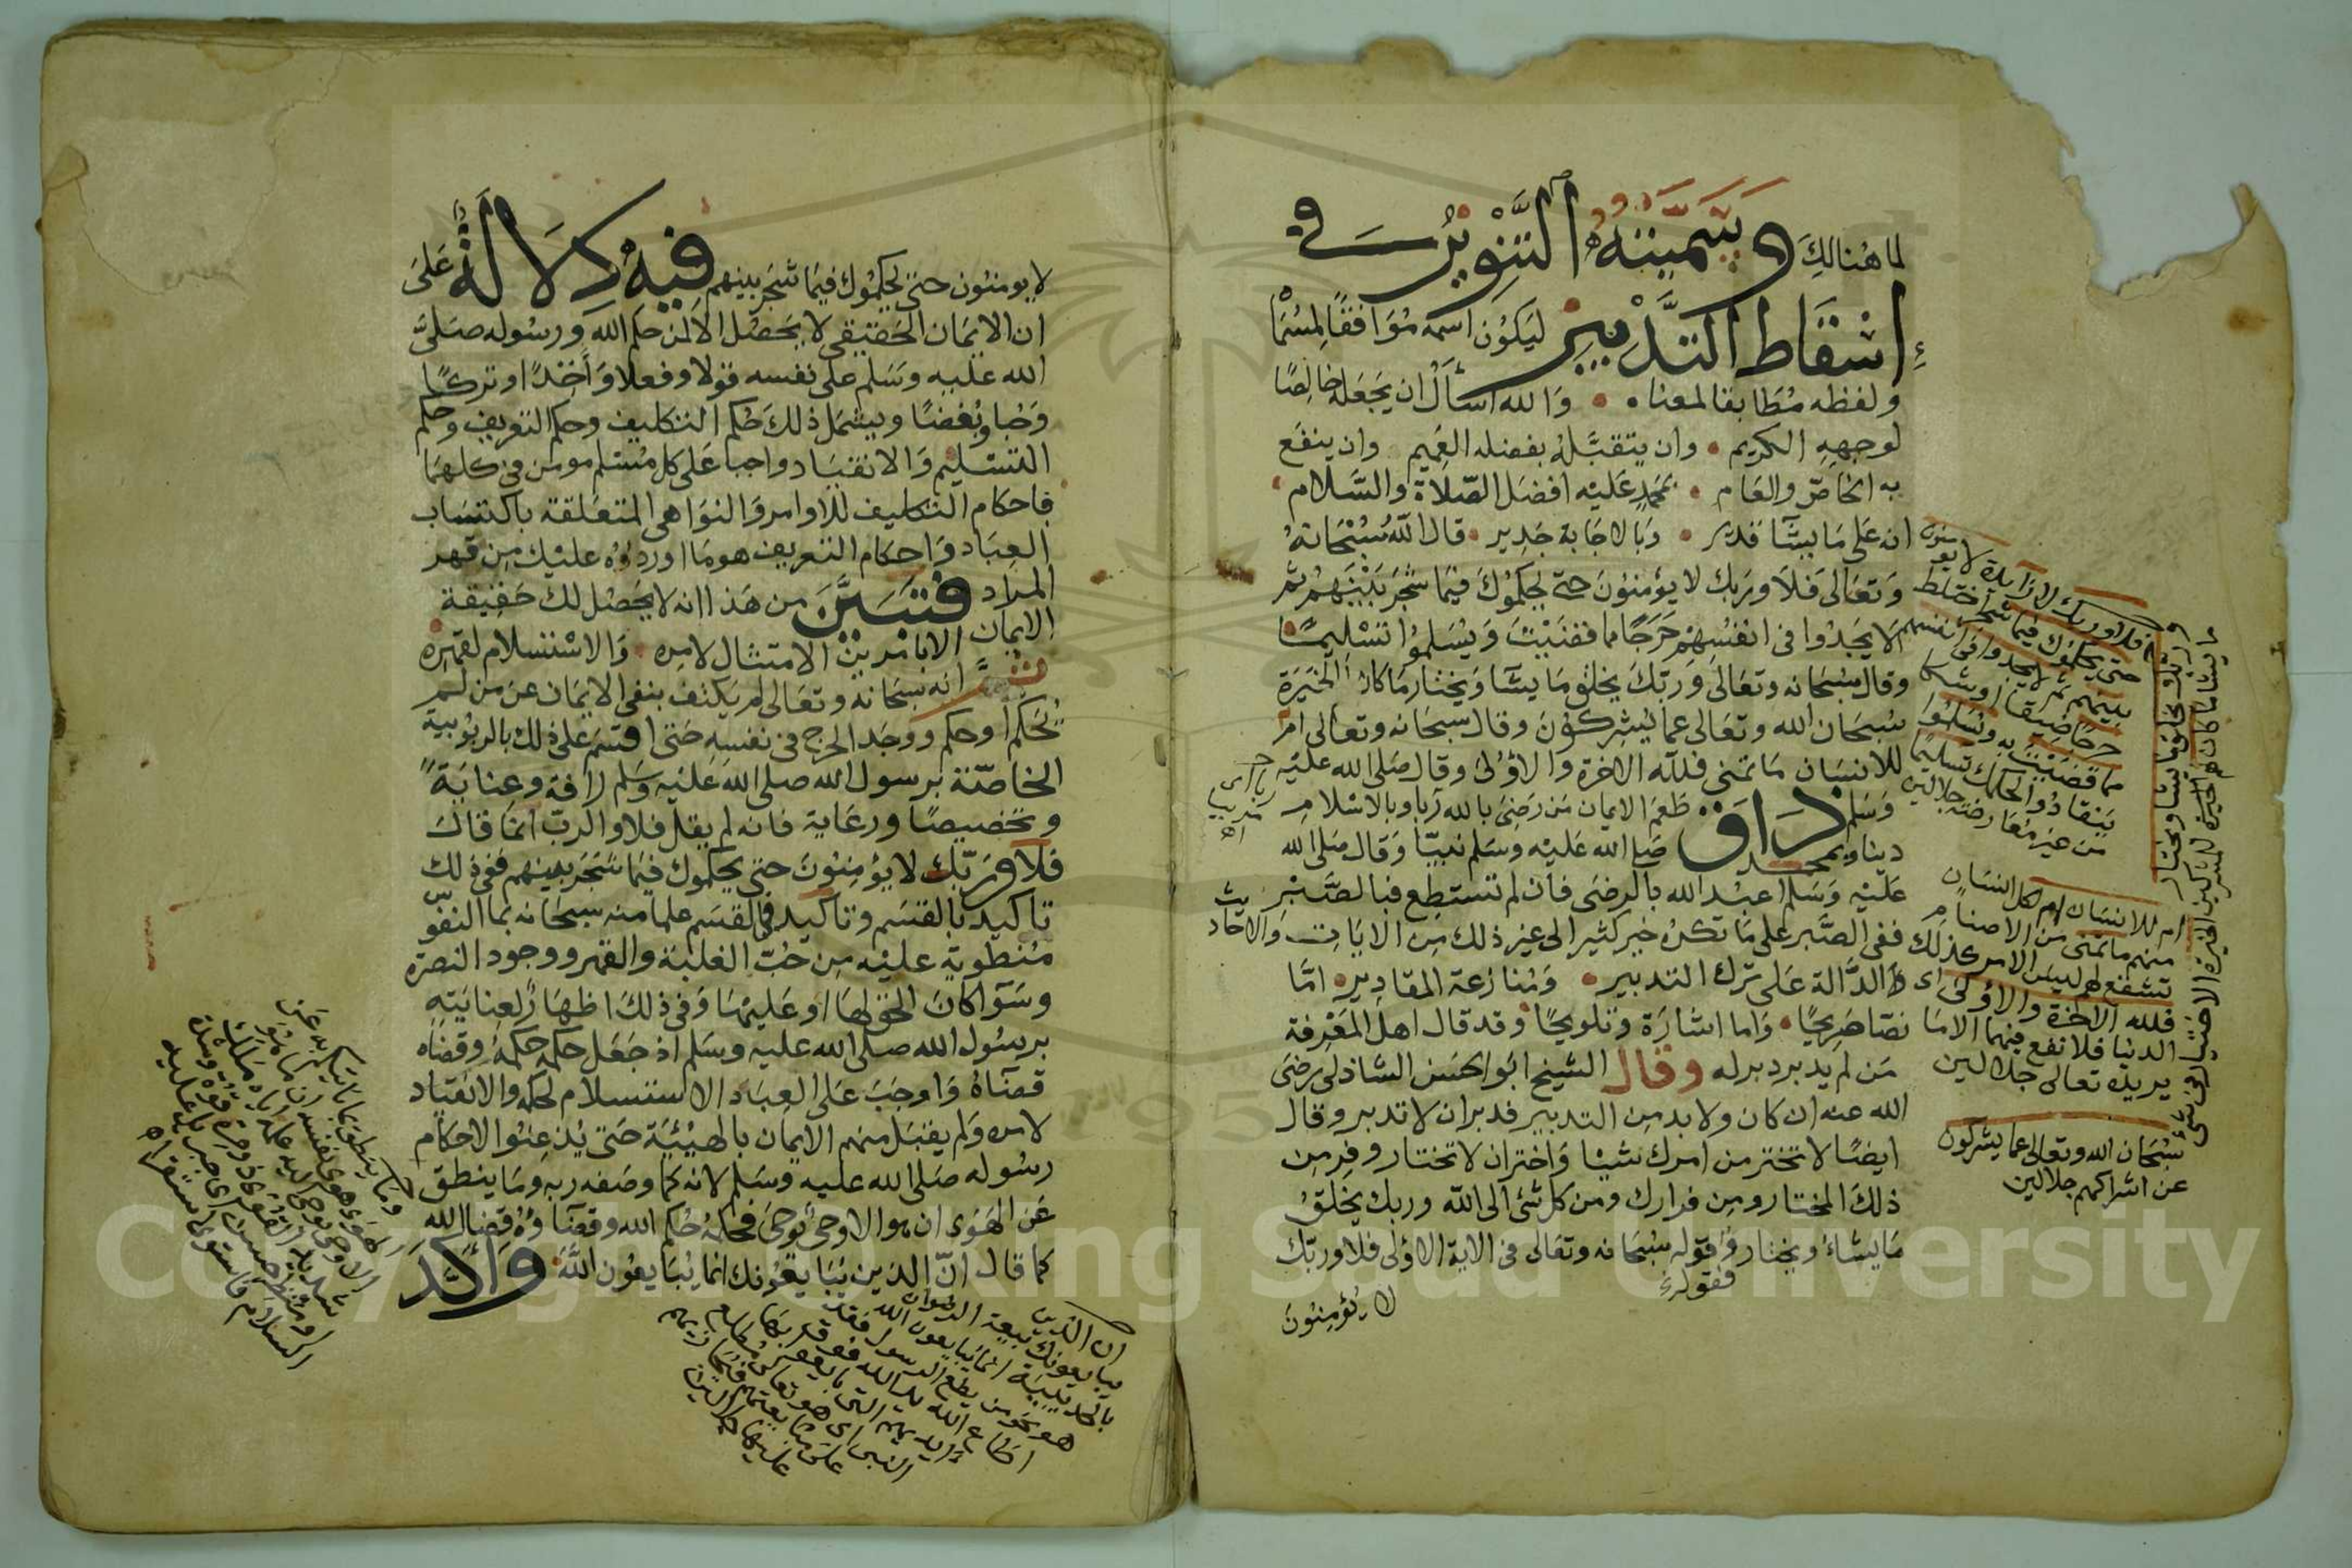 لما هُنالِكَ وسَمَّيتُهُ التَّنْوِيرُ في
إسْقاط التَّدْبِير ليَكوُن اسمه مُوَافقًا لمسْمَّا
ولفظه مُطَابقا لمعناه وَالله اسأَلُ ان يَجَعَله خالِصًا
لوجههِ الكريم وان يتقبَّلهُ بفضله العَميم وان ينفَع
به الخاصّ والعَام بمحمد عَليْه افضَل الصّلاة والسَّلام
انه عَلى مَا يشَآ قدير وَبالاجَابة جَدِير قال اللّهُ سُبْحَانهُ
وَتعَالى فَلاَ ورَبك لا يؤمنوُنَ حتى يحكموُكَ فيمَا شَجَرَ بَيْنهُمْ ثم
لا يَجدُوا فى انفسُهمْ حَرَجًا مما قضَيْتَ وَيُسَلموُا تسْليمًا
وقال سُبْحَانه وتعَالى وَرَبّكَ يخلقُ مَا يشَآ وَيَختار مَا كان الخيَرَة
سُبحَان الله وتعَالى عما يُشِركوُنَ وقال سبحَانه وتعالى ام
للانسَان مَا تمَنى فللّه الاخرة والاوُلىَ وقال صَلى الله عليْه
وَسَلم ذاق طَعمَ الايمان مَن رَضىَ بالله ربا وبالاسْلام
دينا وبمحمد صَلى الله عَليْه وسَلم نبيّا وَقال صَلى الله
عَليْه وَسَلم اعبُد الله بالرضَى فان لم تستطِع فبالصَّبْر
ففى الصَّبر على مَا تكرهُ خير كثير الى غير ذلك مِن الايَات وَالاحاديث
الدَّالة عَلى تَرك التدبير وَمُنازعة المقاديِر امَّا
نصّا صَرِيحًا وَاما اشارَة وَتلويحًا وقد قال اهل المَعْرفة
مَن لم يدبر دبر له وقال الشيخ ابَوا الحَسَن الشاذلى رضىَ
الله عنه ان كان ولا بد مِن التدبير فدبر ان لا تدبر وقال
ايضًا لا تختر من امرك شيْئا وَاختر ان لا تختار وفر مِن
ذلكَ المختار ومِن فرارك ومن كل شئ الى الله وربك يخلقُ
مَا يشاءُ ويختار فقوله سُبحَانه وتعَالى فى الاية الاوُلى فلا وربّك
فقوله
لا يُؤمِنوُنَ
فلا وربك لا زايدة لا يومنون
حتى يحكموك فيما شجر اختلط
بينهم ثم لا يجدوا فى انفسهم
حرجًا ضيقا او شكا
مما قضيت به ويسَلموا
ينقادوا لحكمك تسليما
من غير مُعَارضة جلالين
وربك يخلق ما يشا ويختار
ما يشا ما كان لهم
ام للانسَان ام لكل انسَان
منهم ما تمنى من الاصنام
تشفع لهم ليسَ الامر كذلك
فلله الآخرة والاوُلى اى
الدنيا فلا تقع فيهما الا ما
يريده تعالى جلالين
سُبحَان الله وتعالى عما يشركون
عن اشراكهم جلالين
لا يومنوُن حتى يحكموُك فيمَا شَجَر بينهم فيهِ دِلاَلَةٌ عَلىَ
ان الايمَان الحَقيقى لا يَحصُل الاَ لمن حكم الله ورسُوله صَلىَّ
الله عليه وَسَلم على نفسه قولا وفعلا وَأخذًا وتركًا
وَحُبا وبُغضًا ويشمَل ذلكَ حُكم التكليف وحكم التعريف وحكم
التسْليم وَالانقيَاد واجبا عَلى كل مُسْلم مومن فى كلهمَا
فاحكام التكليف للاوامر وَالنوَاهى المتعَلقة باكتسَاب
العبَاد وَاحكام التعريف هو مَا اوردهُ عليْك مِن قهر
المراد فتبَيَّنَ مِن هَذا انه لا يَحصُل لك حَقِيقة
الايمان الا بامْرَينْ الامتثال لامرِه وَالاسْتسلام لقهرِه
ثم انه سُبحَانه وتعَالى لم يَكتف بنفى الايمَان عن مَن لم
يُحَكم او حكم ووجَد الحرج فى نفسِهِ حَتى اقسَم عَلى ذلك بالربُوبية
الخاصّة برسول الله صلى الله عَليْه وسَلم رَافة وعنايَةً
وتخصيصًا ورعَاية فانه لم يقل فلا والربّ انمَا قال
فَلا وَرَبّك لا يؤمِنوُنَ حتى يحكموك فيمَا شجَر بينهم ففى ذلك
تاكيد بالقسَم وتاكيد فى القسَم علما منه سبحَانه بما النفوس
مُنطويَة عليْه مِن حُبّ الغلبَة والقهر ووجود النصرة
وسَوآ كانَ الحق لهَا او عَليْهَا وَفى ذلكَ اظهَار لعنايَته
برسُول الله صلى الله عليه وسَلم اذ جَعَل حكمه حكمهُ وقضاه
قضآهُ وَاوجَبَ عَلى العِبَاد الاستسلام لحكمه والانقيَاد
لامره وَلم يقبَل منهم الايمان بالهيْئة حَتى يُذعنوُا لاحكام
رسُوله صَلى الله عليه وسَلم لانه كما وصَفه ربه وَمَا ينطق
عَن الهَوى ان هوا الا وحىٌ يوُحىَ فحكمهُ حُكم الله وقضآؤهُ قضَاالله
كما قال انّ الذين يُبَايعُونك انما يُبَايعُون اللهَ وَأكَّدَ
ان الذين
يبايعونك بيعة الرضوان
بالحديبية انما يبايعون الله
هو نحو من يطع الرسول فقد
اطاع الله يد الله فوق